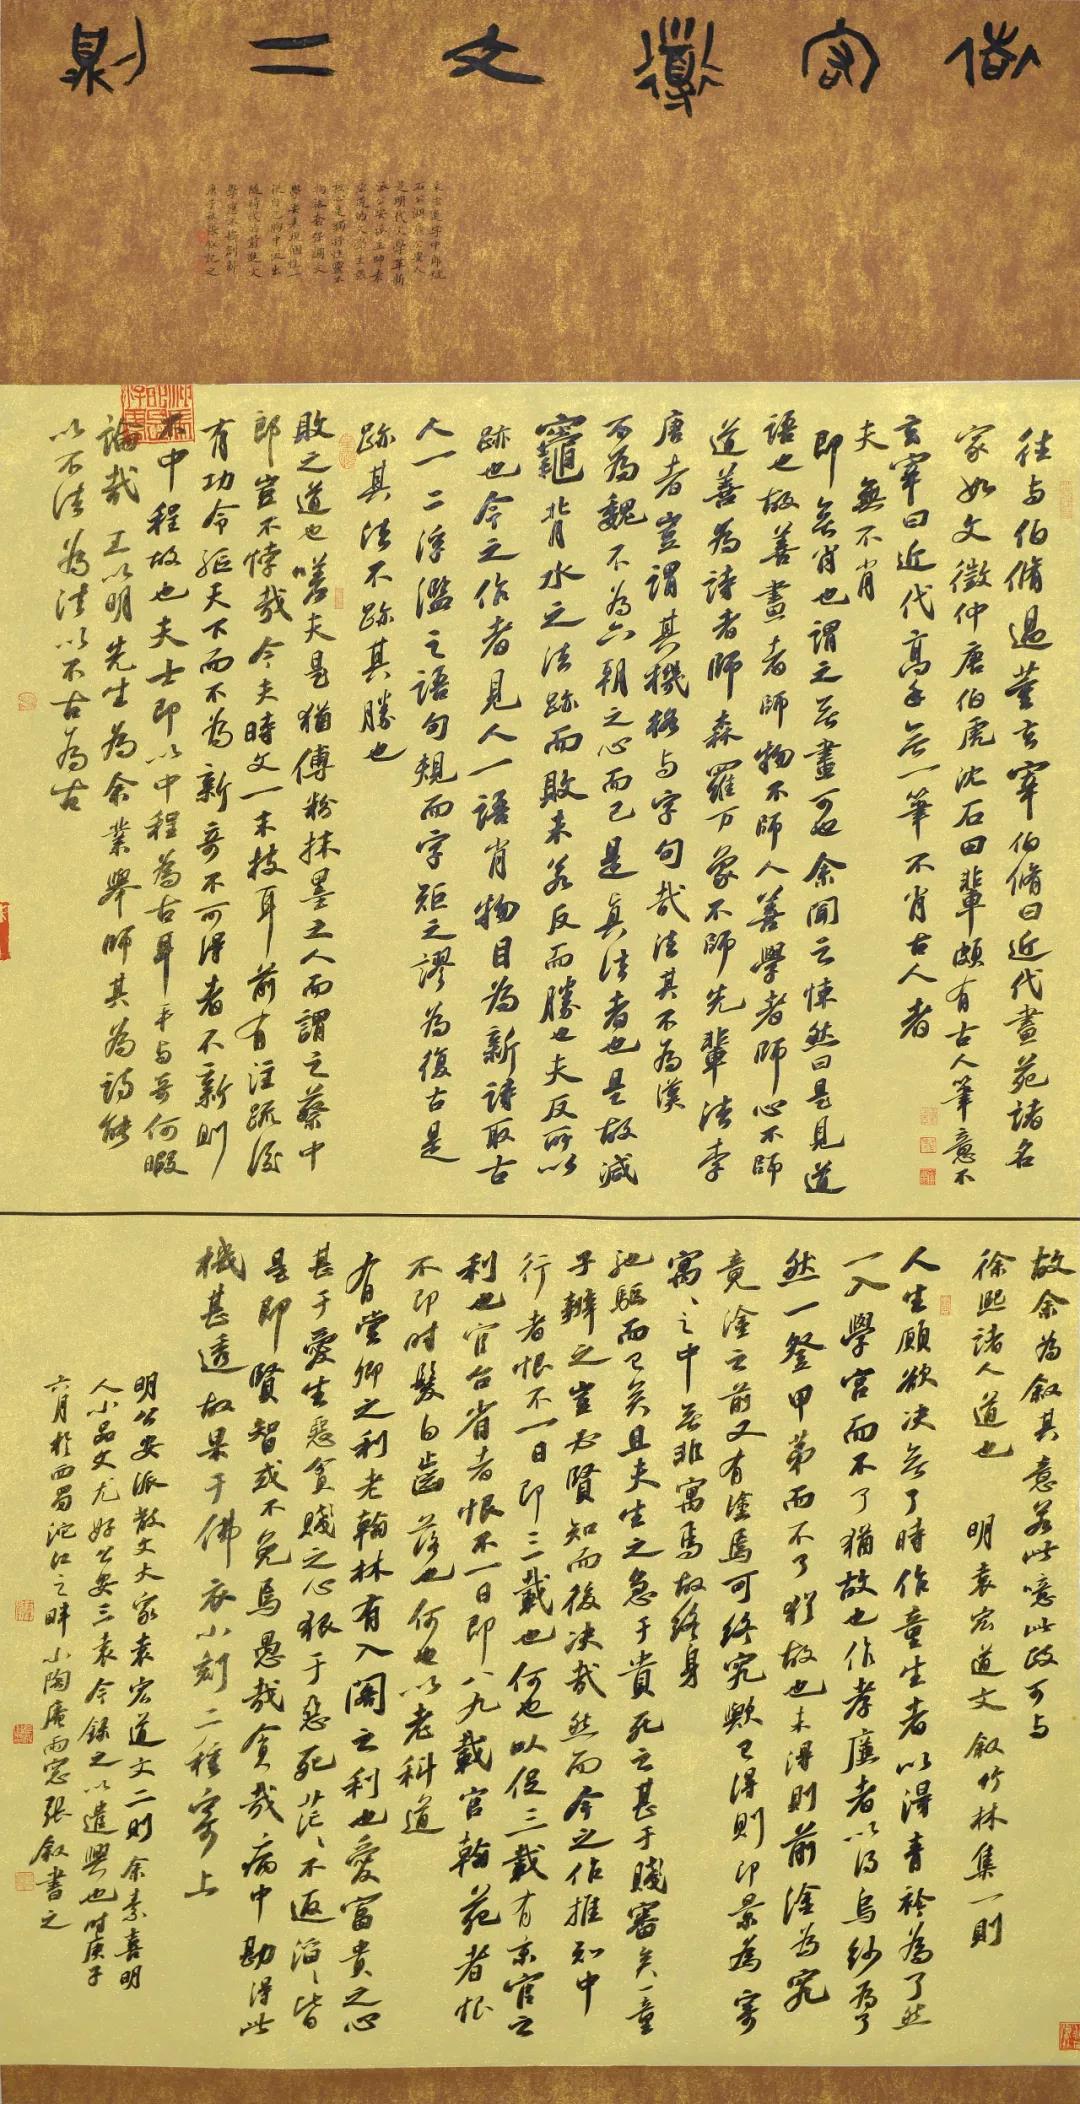 袁宏道文二則
袁宏道字中郎號
石公湖廣公安人
是明代文學革新
派公安派主帥袁
宏道的文學主張
核心是獨抒性靈不
拘格套
學要表現個性一
從自己胸中流出
隨時代而前進文
學應不斷創新
庚子秋張叙記之
往与伯脩過董玄宰伯脩曰近代畫苑諸名
家如文徵仲唐伯虎沈石田輩頗有古人筆意不
玄宰曰近代高手無一筆不肖古人者
夫無不肖
即無肖也謂之無畫可也余聞之悚然曰是見道
語也故善畫者師物不師人善學者師心不師
道善為詩者師森羅万象不師先輩法李
唐者豈謂其機格与字句哉法其不為漢
不為魏不為六朝之心而已是真法者也是故減
竈背水之法跡而敗未若反而勝也夫反所以
跡也今之作者見人一語肖物目為新詩取古
人一二浮濫之語句規而字矩之謬為復古是
跡其法不跡其勝也
敗之道也嗟夫是猶傅粉抹墨之人而謂之蔡中
郎豈不悖哉今夫時文一末技耳前有注疏後
有功令驅天下而不為新奇不可得者不新則
不中程故也夫士即以中程為古耳平与奇何暇
論哉 王以明先生為余業舉師其為詩能
以不法為法以不古為古
故余為叙其意若此噫此政可与
徐熙諸人道也 明袁宏道文 叙竹林集一則
人生願欲决無了時作童生者以得青衿為了然
一入學宮而不了猶故也作孝廉者以得烏紗為了
然一登甲第而不了猶故也未得則前塗為究
竟塗之前又有塗焉可終究歟已得則即景為寄
寓〻之中無非寓焉故終身
馳驅而已矣且夫生之急于貴死之甚于賤審矣童
子辨之豈必賢知而後决哉然而今之作推知中
行者恨不一日即三載也何也以促三載有京官之
利也官台省者恨不一日即八九載官翰苑者恨
不即时髮白齒落也何也以老科道
有堂卿之利老翰林有入閣之利也愛富貴之心
甚于愛生惡貧賤之心狠于惡死茫〻不返滔〻皆
是即賢智或不免焉愚哉貪哉病中勘得此
機甚透故果于佛衣小刻二種寄上
明公安派散文大家袁宏道文二則余素喜明
人小品文尤好公安三袁今錄之以遣興也时庚子
六月於西蜀沱江之畔小陶庵雨窓張叙書之